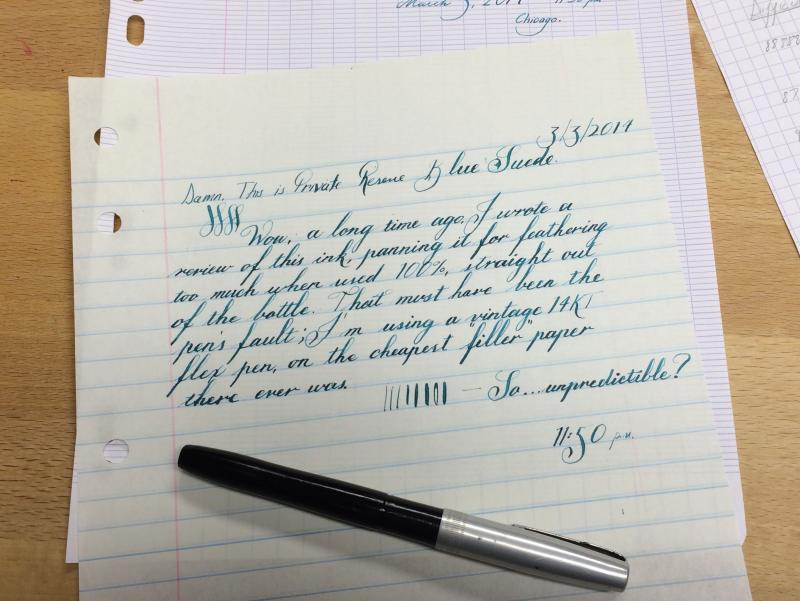 March 3, 2014 11:50 pm
Chicago.
3/3/2014
Damn. This is Private Reserve Blue Suede.
Wow, a long time ago, I wrote a
review of this ink, panning it for feathering
too much when used 100%, straight out
of the bottle. That must have been the
pen's fault; I'm using a vintage 14KT
flex pen, on the cheapest "filler" paper
there ever was.
— So...unpredictible?
11:50 p.m.